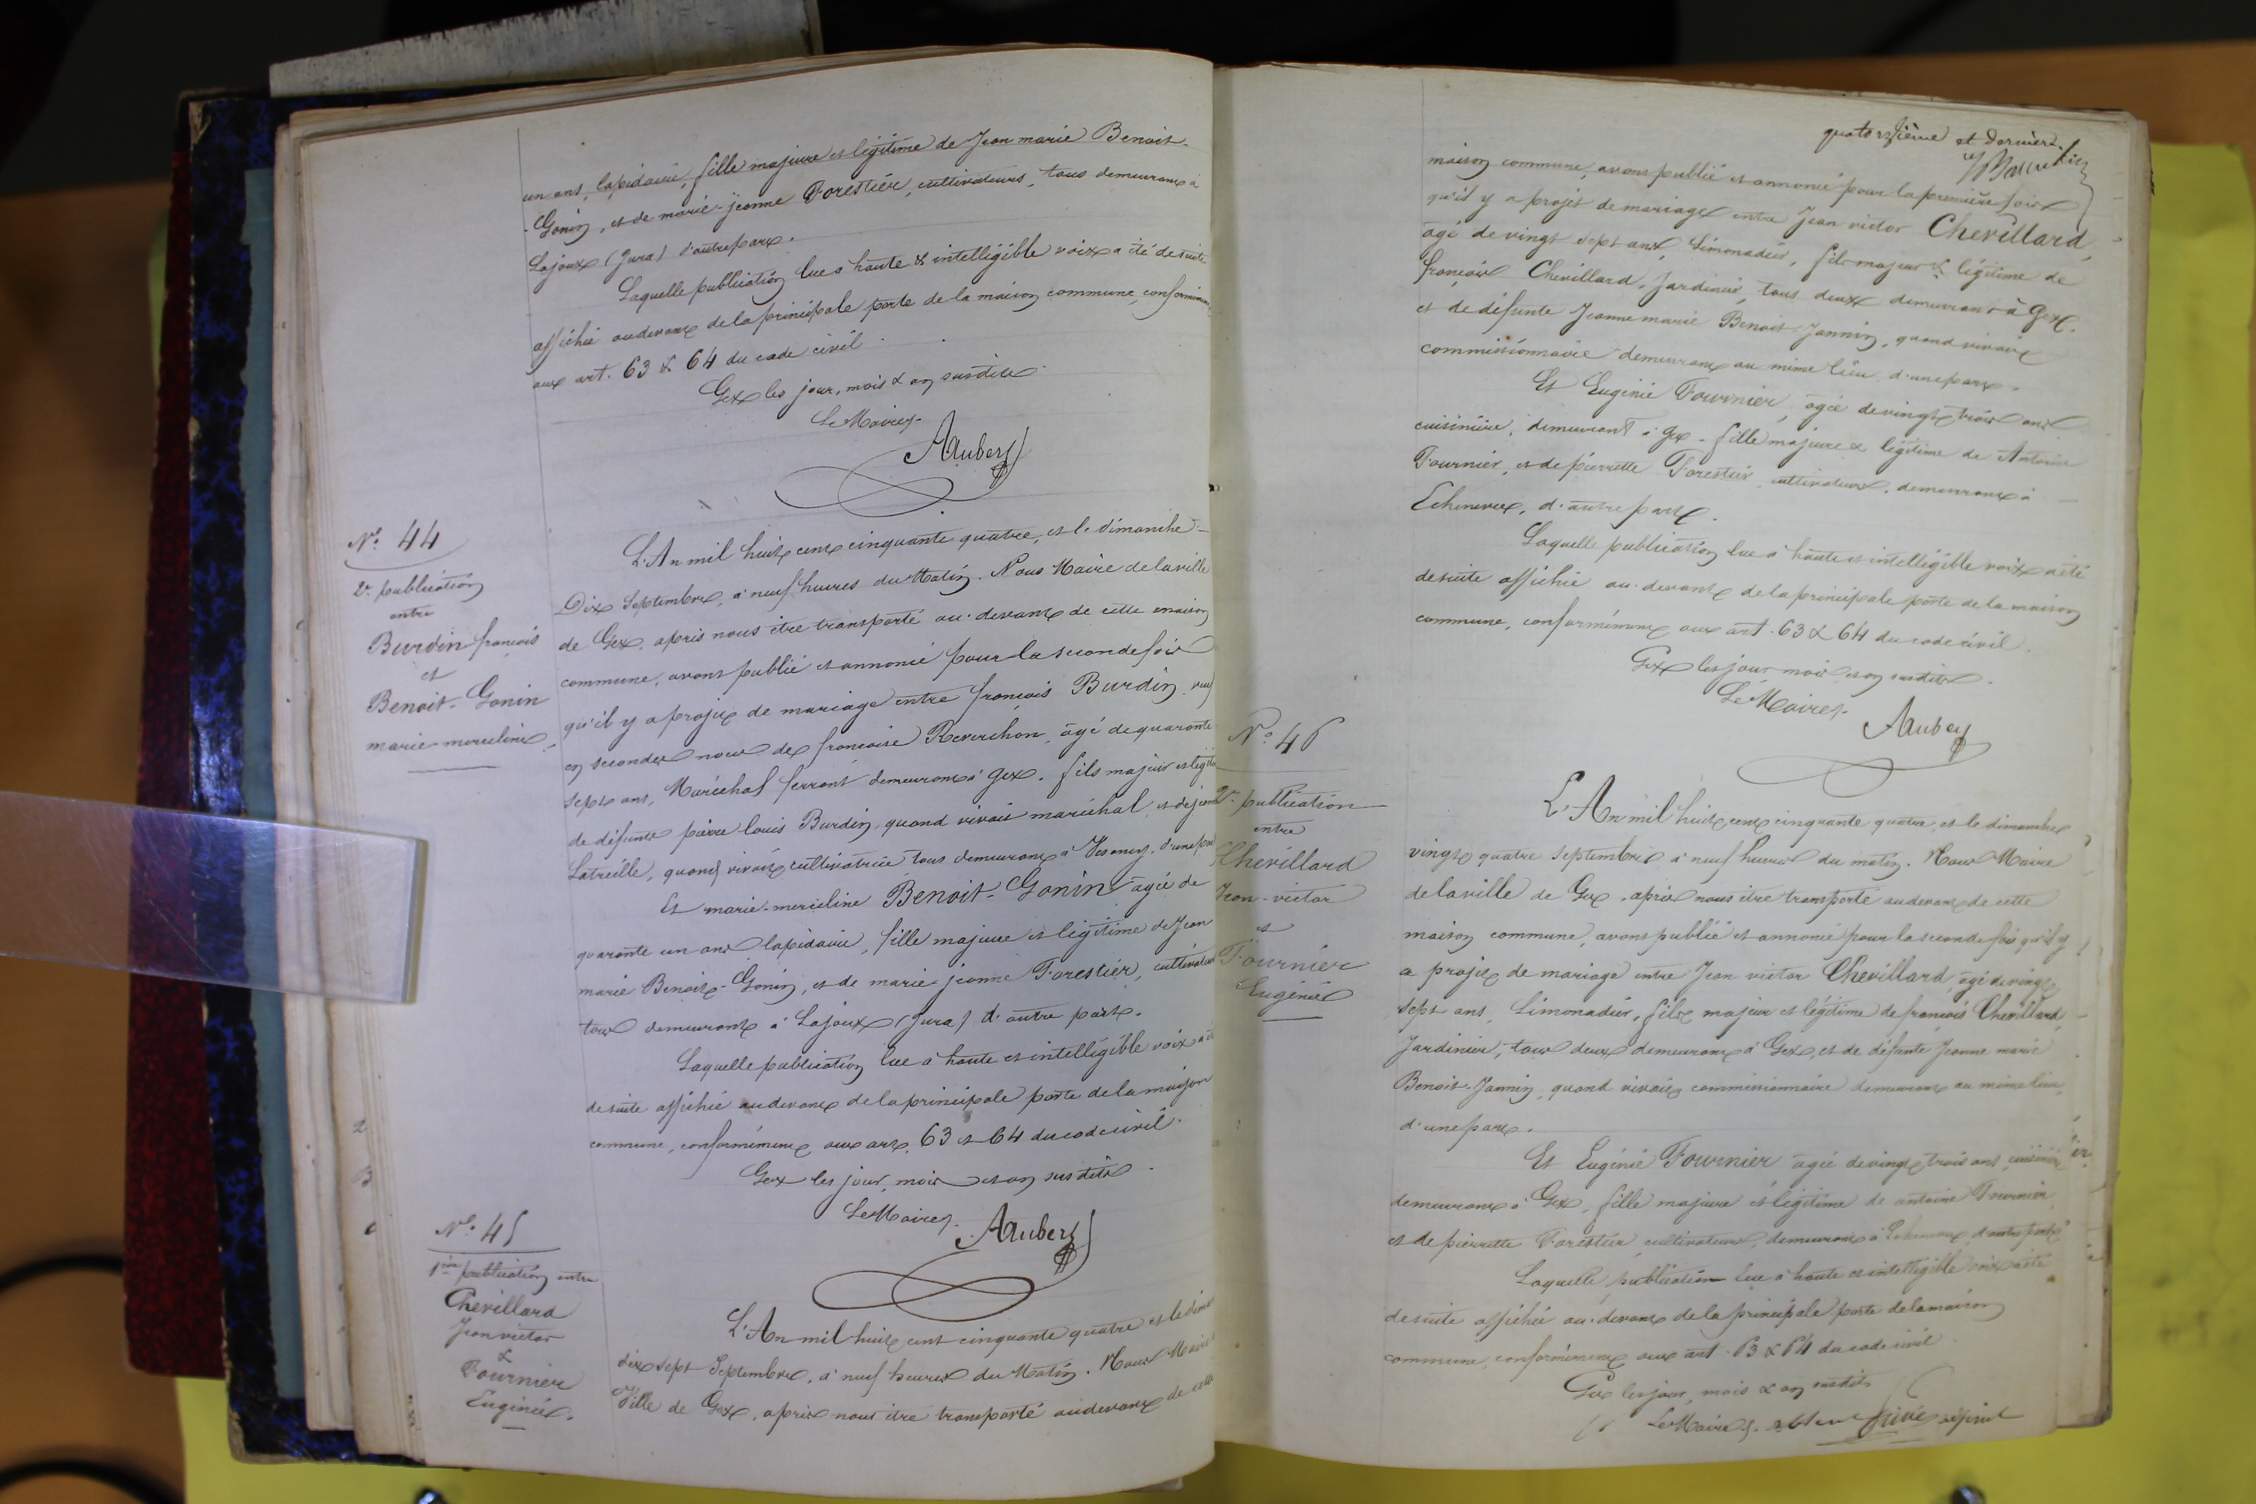 un ans, lapidaire, fille majeure et légitime de Jean marie Benoit-
Gonin, et de marie-jeanne Forestier, cultivateurs, tous demeurant à
Lajoux (Jura) d'autre part.
Laquelle publication lue à haute & intelligible voix a été de suite
affichée au devant de la principale porte de la maison commune, conformément
aux art. 63 & 64 du code civil.
Gex les jour, mois & an susdits.
Le Maire
AAubert
No. 44
2e. publication
entre
Burdin françois
et
Benoit-Gonin
marie-merceline
L'An mil huit cent cinquante quatre, et le dimanche
Dix Septembre, à neuf heures du Matin. Nous Maire de la ville
de Gex, après nous être transporté au-devant de cette maison
commune, avons publié et annoncé pour la seconde fois
qu'il y a projet de mariage entre françois Burdin, veuf
en secondes noces de françoise Reverchon, âgé de quarante
sept ans, Maréchal ferrant demeurant à Gex, fils majeur et légit
de défunts pierre louis Burdin, quand vivait maréchal, et de
Latreille, quand vivait cultivatrice tous demeurant à Vesancy, d'une part
Et marie-merceline Benoit-Gonin âgée de
quarante un ans lapidaire, fille majeure et légitime de Jean
marie Benoit-Gonin, et de marie-jeanne Forestier, cultivateurs
tous demeurant à Lajoux (Jura) d'autre part.
Laquelle publication lue à haute et intelligible voix a été
de suite affichée au devant de la principale porte de la maison
commune, conformément aux art. 63 et 64 du code civil.
Gex les jour, mois et an susdits.
Le Maire.
AAubert
No. 45
1ère publication entre
Chevillard
Jean victor
&
Fournier
Eugénie.
L'An mil huit cent cinquante quatre et le diman
dix sept Septembre, à neuf heures du Matin. Nous Maire
Ville de Gex, après nous être transporté au devant de cette
quatorzième et dernière.
maison commune, avons publié et annoncé pour la première fois
qu'il y a projet de mariage entre Jean victor Chevillard,
âgé de vingt sept ans, Limonadier, fils majeur & légitime de
françois Chevillard, Jardinier, tous deux demeurant à Gex,
et de défunte Jeanne marie Benoit-Jannin, quand vivait
commissionnaire demeurant au même lieu, d'une part.
Et Eugénie Fournier, âgée de vingt trois ans
cuisinière, demeurant à Gex, fille majeure & légitime de Antoine
Fournier, et de pierrette Forestier, cultivateurs, demeurant à
Echenevex, d'autre part.
Laquelle publication lue à haute et intelligible voix a été
de suite affichée au-devant de la principale porte de la maison
commune, conformément aux art. 63 & 64 du code civil.
Gex les jour, mois et an susdits.
Le Maire.
AAubert
No. 46
2e. publication
entre
Chevillard
Jean-victor
et
Fournier
Eugénie
L'An mil huit cent cinquante quatre, et le dimanche
vingt quatre Septembre à neuf heures du matin. Nous Maire
de la ville de Gex, après nous être transporté au devant de cette
maison commune, avons publié et annoncé pour la seconde fois qu'il y
a projet de mariage entre Jean victor Chevillard, âgé de vingt
sept ans, Limonadier, fils majeur et légitime de françois Chevillard,
Jardinier, tous deux demeurant à Gex, et de défunte Jeanne marie
Benoit-Jannin, quand vivait commissionnaire demeurant au même lieu,
d'une part.
Et Eugénie Fournier âgée de vingt trois ans, cuisinière
demeurant à Gex, fille majeure et légitime de antoine Fournier,
et de pierrette Forestier cultivateurs demeurant à Echenevex d'autre part
Laquelle publication lue à haute et intelligible voix a été
de suite affichée au-devant de la principale porte de la maison
commune, conformément aux art. 63 & 64 du code civil
Gex les jour, mois & an susdits
Le Maire